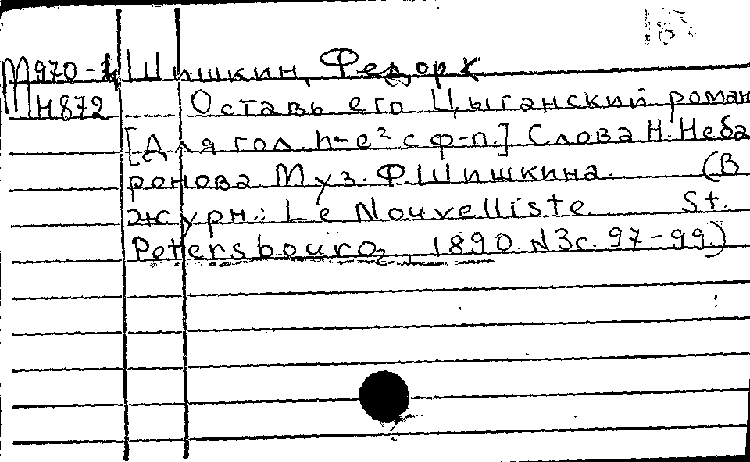 М970-4 Шишкин, Федор К
Н872 Оставь его Цыганский роман
[Для гол. h-e² с ф-п.] Слова Н. Неба
ронова. Муз. Ф. Шишкина. (В
журн.: Le Nouvelliste. St.
Petersbourg, 1890. N3 с. 97-99.)